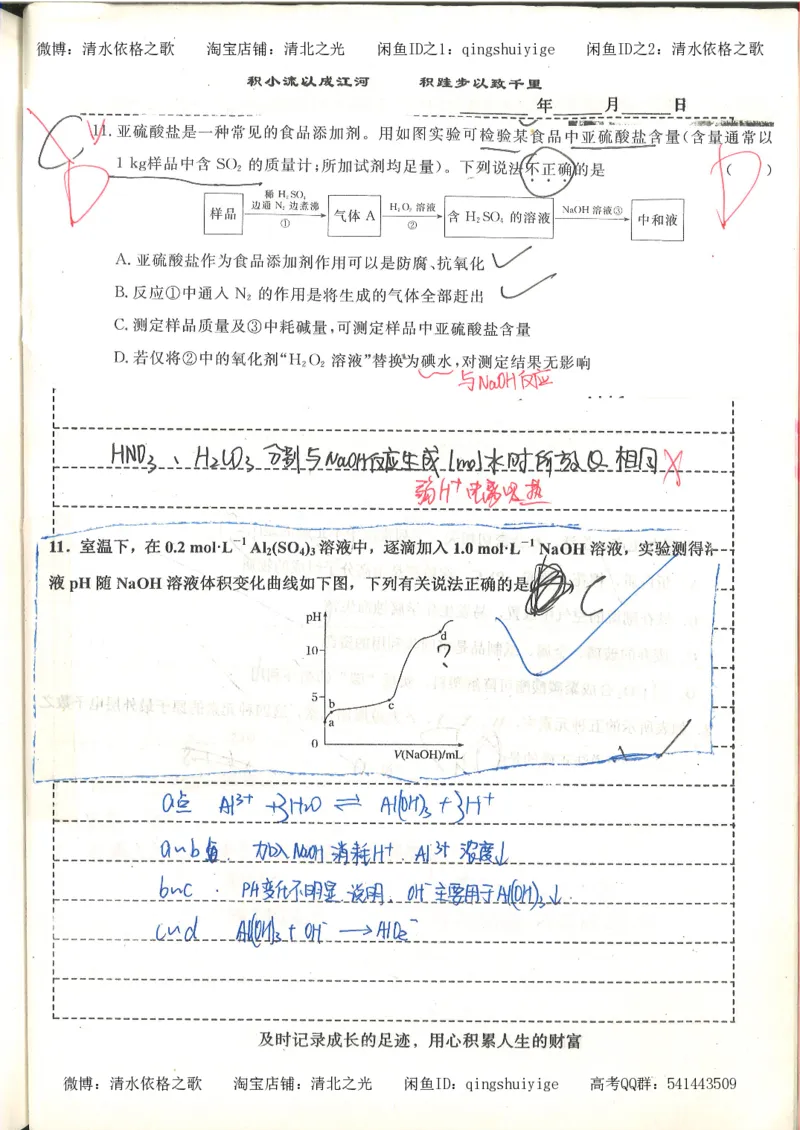 微博：清水依格之歌 淘宝店铺：清北之光 闲鱼ID之1：qingshuiyige 闲鱼ID之2：清水依格之歌
积小流以成江河 积跬步以致千里
年 月 日
11. 亚硫酸盐是一种常见的食品添加剂。用如图实验可检验某食品中亚硫酸盐含量(含量通常以
1 kg样品中含 SO₂ 的质量计；所加试剂均足量)。下列说法不正确的是 ( )
样品 稀 H₂SO₄ 边通 N₂ 边煮沸 ① 气体 A H₂O₂ 溶液 ② 含 H₂SO₄ 的溶液 NaOH 溶液③ 中和液
A. 亚硫酸盐作为食品添加剂作用可以是防腐、抗氧化
B. 反应①中通入 N₂ 的作用是将生成的气体全部赶出
C. 测定样品质量及③中耗碱量，可测定样品中亚硫酸盐含量
D. 若仅将②中的氧化剂“H₂O₂ 溶液”替换为碘水，对测定结果无影响
与NaOH反应
HNO₃、H₂CO₃ 分别与NaOH反应生成1mol水时所放Q 相同
弱H⁺电离吸热
11．室温下，在 0.2 mol·L⁻¹ Al₂(SO₄)₃ 溶液中，逐滴加入 1.0 mol·L⁻¹ NaOH 溶液，实验测得溶
液 pH 随 NaOH 溶液体积变化曲线如下图，下列有关说法正确的是 C
pH
d
10
?
5
b
c
a
0
V(NaOH)/mL
a点 Al³⁺ +3H₂O ⇌ Al(OH)₃ + 3H⁺
a~b点. 加入NaOH 消耗H⁺. Al³⁺ 浓度↓
b~c . PH变化不明显 说明. OH⁻主要用于Al(OH)₃↓.
c~d Al(OH)₃ + OH⁻ → AlO₂⁻
及时记录成长的足迹，用心积累人生的财富
微博：清水依格之歌 淘宝店铺：清北之光 闲鱼ID：qingshuiyige 高考QQ群：541443509